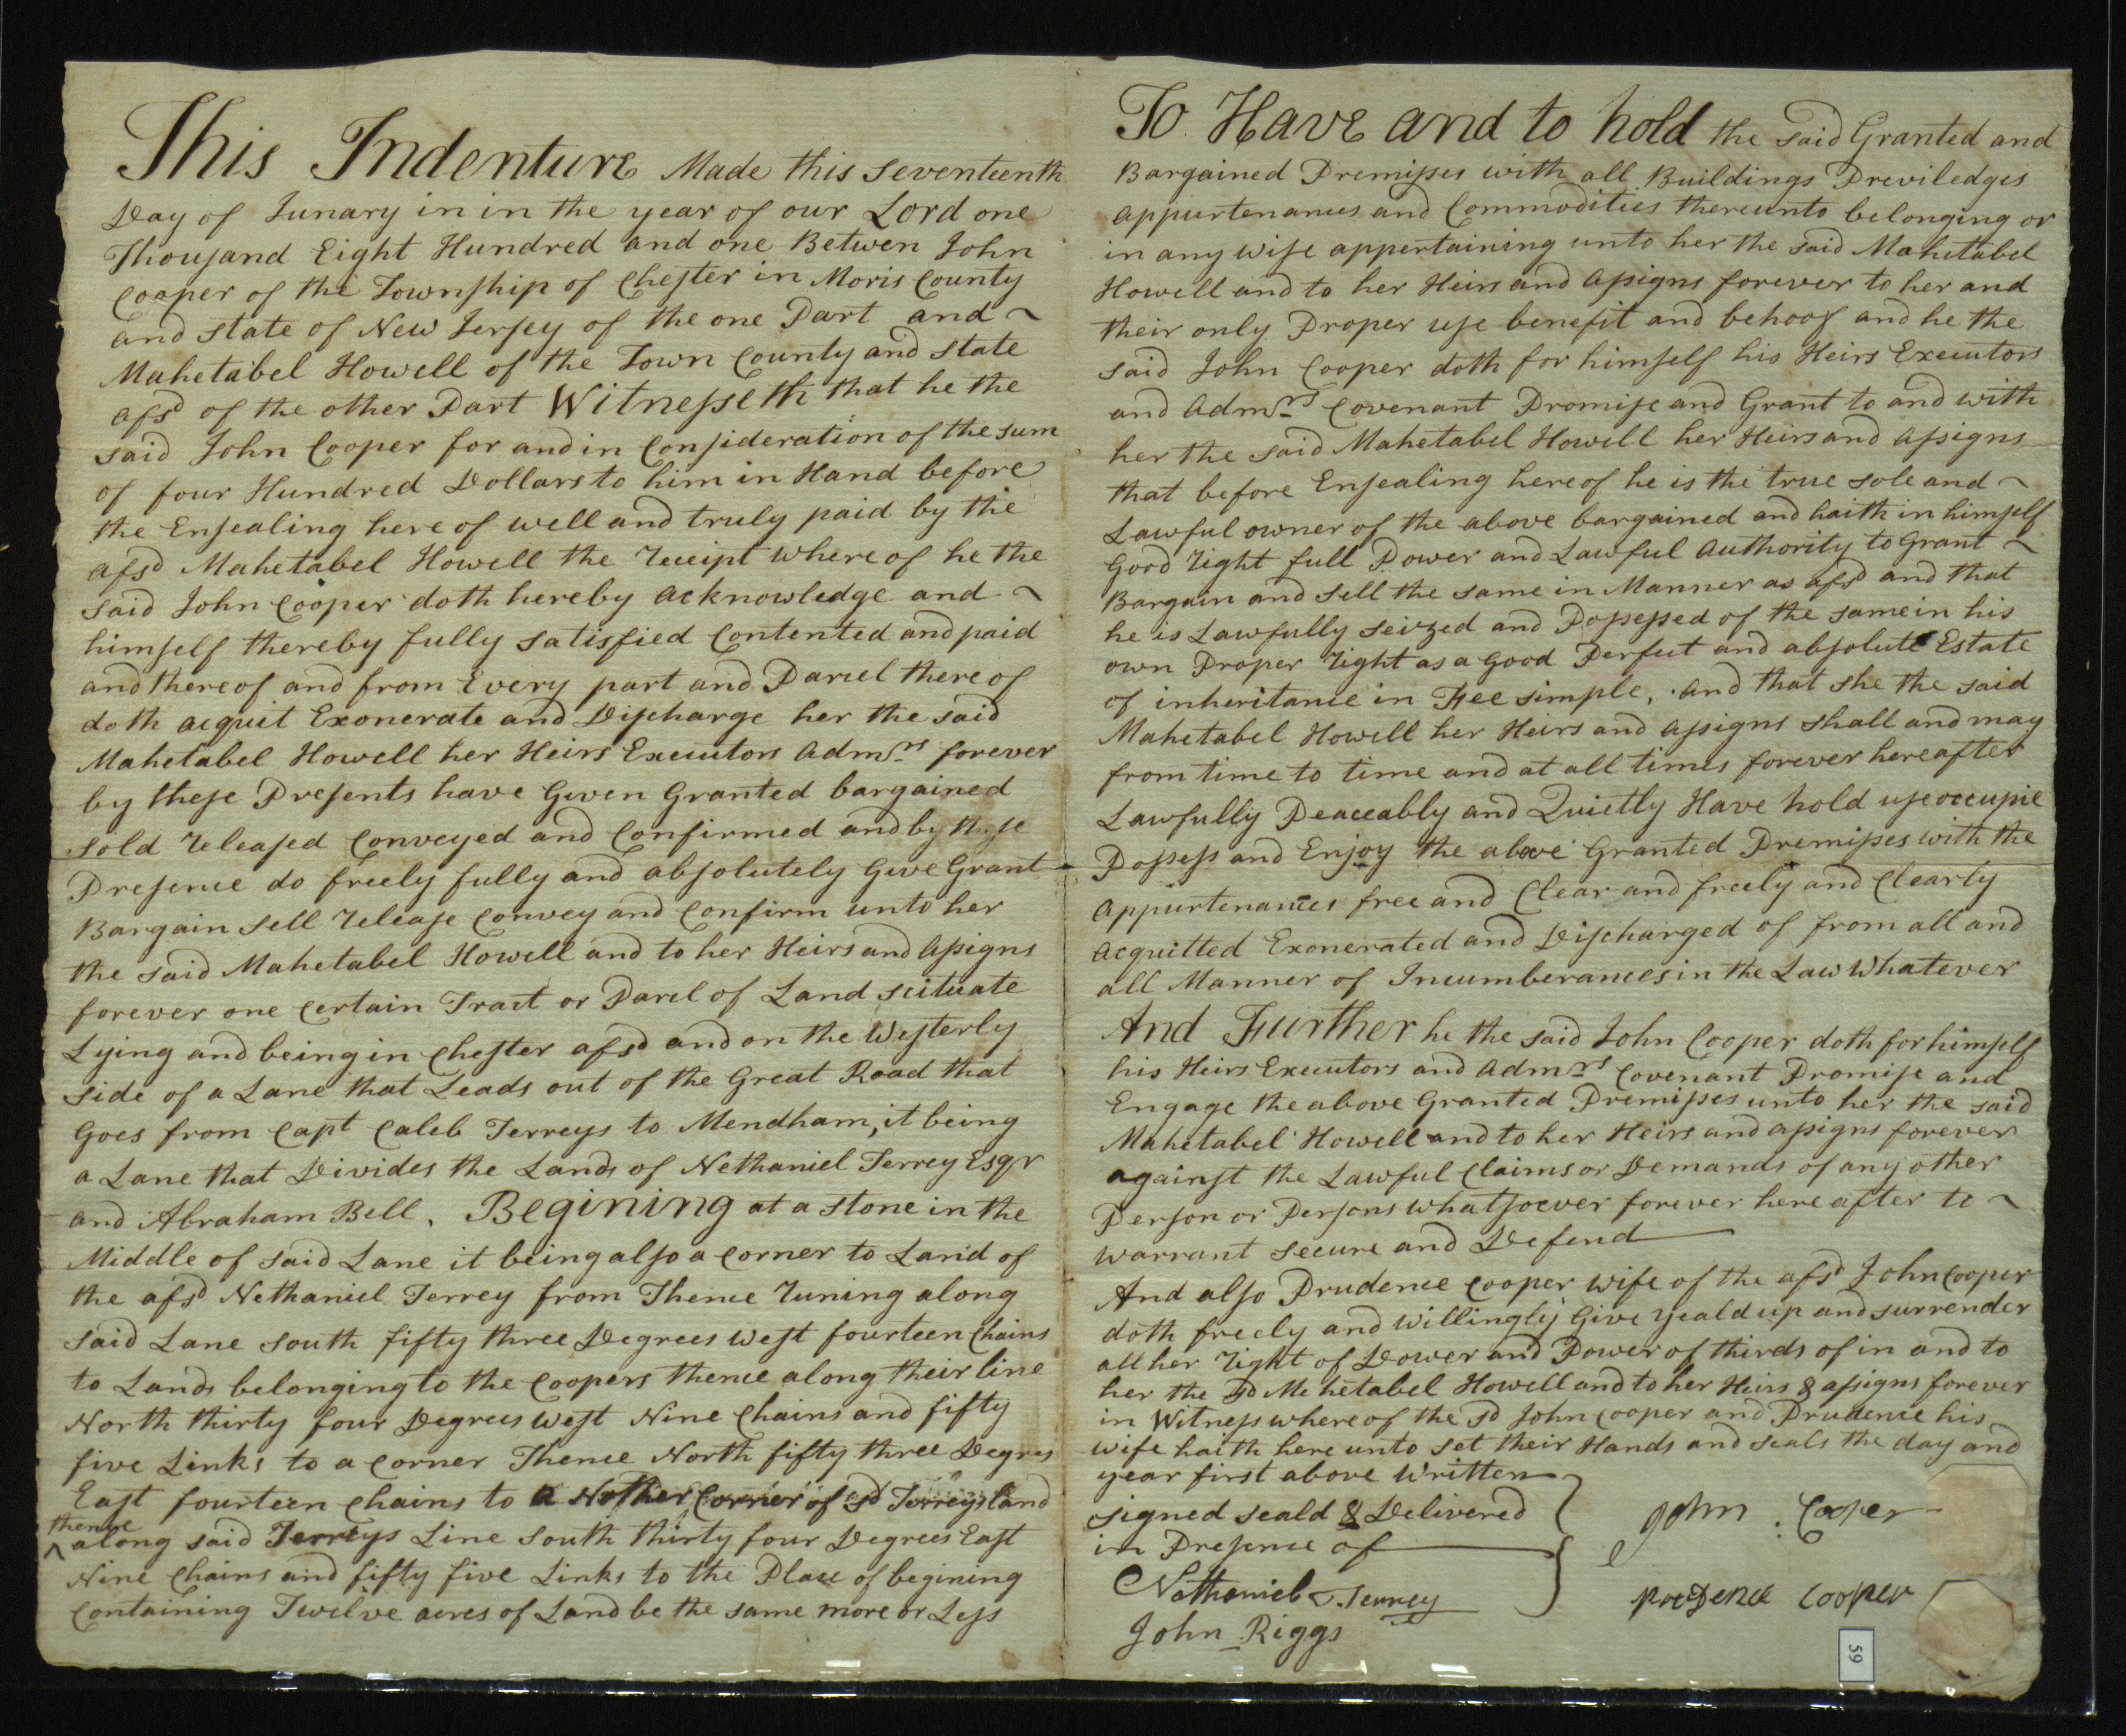 This Indenture Made this seventeenth
Day of Junary in in the year of our Lord one
Thousand Eight Hundred and one Betwen John
Cooper of the Township of Chester in Moris County
and state of New Jersey of the one Part and ~
Mahetabel Howell of the Town County and state
afsd of the other Part Witnesseth that he the
said John Cooper for and in Consideration of the sum
of four Hundred Dollars to him in Hand before
the Ensealing here of well and truly paid by the
afsd Mahetabel Howell the receipt where of he the
said John Cooper doth hereby acknowledge and ~
himself thereby fully satisfied Contented and paid
and there of and from Every part and Parcel there of
doth acquit Exonerate and Discharge her the said
Mahetabel Howell her Heirs Executors Admrs forever
by these Presents have Given Granted bargained
sold released Conveyed and Confirmed and by these
Presence do freely fully and absolutely Give Grant
Bargain sell release Convey and Confirm unto her
the said Mahetabel Howell and to her Heirs and assigns
forever one Certain Tract or Parcl of Land scituate
Lying and being in Chester afsd and on the Westerly
side of a Lane that Leads out of the Great Road that
Goes from Capt Caleb Terreys to Mendham, it being
a Lane that Divides the Lands of Nethaniel Terrey Esqr
and Abraham Bell. Begining at a stone in the
Middle of said Lane it being also a Corner to Land of
the afsd Nethaniel Terrey from Thence runing along
said Lane south fifty three Degrees west fourteen Chains
to Lands belonging to the Coopers thence along their line
North thirty four Degrees west Nine Chains and fifty
five Links to a Corner Thence North fifty three Degres
East fourteen Chains to a Nother Corner of sd Terreys land
thence
^ along said Terreys Line south thirty four Degrees East
Nine Chains and fifty five Links to the Place of begining
Containing Twelve acres of Land be the same more or Less
To Have and to hold the said Granted and
Bargained Premisses with all Buildings Previledges
appurtenances and Commodities thereunto belonging or
in any wise appertaining unto her the said Mahetabel
Howell and to her Heirs and assigns forever to her and
their only Proper use benefit and behoof and he the
said John Cooper doth for himself his Heirs Executors
and Admrs Covenant Promise and Grant to and with
her the said Mahetabel Howell her Heirs and assigns
that before Ensealing here of he is the true sole and ~
Lawful owner of the above bargained and haith in himself
Good right full Power and Lawful Authority to Grant ~
Bargain and sell the same in Manner as afsd and that
he is Lawfully seized and Possessed of the same in his
own Proper right as a Good Perfect and absolute Estate
of inheritance in Fee simple. And that she the said
Mahetabel Howell her Heirs and assigns shall and may
from time to time and at all times forever hereafter
Lawfully Peaceably and Quietly Have hold use occupie
Possess and Enjoy the above Granted Premisses with the
Appurtenances free and Clear and freely and Clearly
acquitted Exonerated and Discharged of from all and
all Manner of Incumberances in the Law Whatever
And Further he the said John Cooper doth for himself
his Heirs Executors and Admrs Covenant Promise and
Engage the above Granted Premisses unto her the said
Mahetabel Howell and to her Heirs and assigns forever
against the Lawful Claims or Demands of any other
Person or Persons whatsoever forever here after to ~
warrant secure and Defend
And also Prudence Cooper wife of the afsd John Cooper
doth freely and willingly Give yeald up and surrender
all her right of Dower and Power of thirds of in and to
her the sd Mehetabel Howell and to her Heirs & assigns forever
in Witness where of the sd John Cooper and Prudence his
wife haith here unto set their Hands and seals the day and
year first above Written
signed seald & Delivered
in Presence of
John Cooper
Nathaniel Terrey
prudence Cooper
John Riggs
59